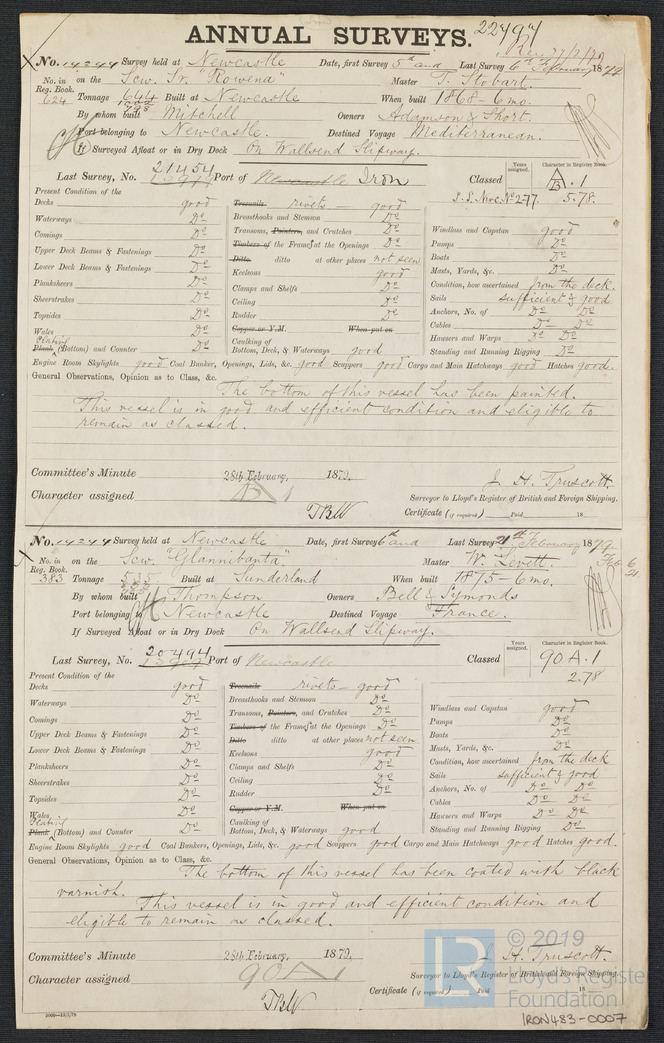 ANNUAL SURVEYS. 22797
No. 14244 Survey held at Newcastle Date, first Survey 5th and Last Survey 6th February 1879
No. in Reg. Book. 624 on the Scw. Sr. "Rowena" Master T. Stobart.
Tonnage 644 Built at Newcastle When built 1868-6mo.
By whom built Mitchell Owners Adamson & Short.
Port belonging to Newcastle. Destined Voyage Mediterranean.
If Surveyed Afloat or in Dry Dock On Wallsend Slipway.
Years assigned. Character in Register Book.
Last Survey, No. 21454 Port of Newcastle Iron Classed A.1
S.S. Nwc. No 2-77. 5.78.
Present Condition of the
Decks good Treenails rivets - good
Waterways Do Breasthooks and Stemson Do Windlass and Capstan good
Comings Do Transoms, Pointers, and Crutches Do Pumps Do
Upper Deck Beams & Fastenings Do Timbers of the Frames at the Openings Do Boats Do
Lower Deck Beams & Fastenings Do Ditto ditto at other places not seen Masts, Yards, &c. Do
Planksheers Do Keelsons good Condition, how ascertained from the deck.
Sheerstrakes Do Clamps and Shelfs Do Sails sufficient & good
Topsides Do Ceiling Do Anchors, No. of Do Do
Rudder Do Cables Do Do
Wales Do Copper or Y.M. When put on Hawsers and Warps Do Do
Plank Plating (Bottom) and Counter Do Caulking of Bottom, Deck, & Waterways good Standing and Running Rigging Do
Engine Room Skylights good Coal Bunker, Openings, Lids, &c. good Scuppers good Cargo and Main Hatchways good Hatches good.
General Observations, Opinion as to Class, &c. The bottom of this vessel has been painted.
This vessel is in good and efficient condition and eligible to
remain as classed.
Committee's Minute 28th February, 1879. J. H. Truscott.
Character assigned Surveyor to Lloyd's Register of British and Foreign Shipping.
Certificate (if required) Paid 18
No. 14244 Survey held at Newcastle Date, first Survey 6th and Last Survey 21st February 1879.
No. in Reg. Book. 383 on the Scw. "Glannibanta" Master W. Levett.
Tonnage 535 Built at Sunderland When built 1875-6mo.
By whom built Thompson Owners Bell & Symonds
Port belonging to Newcastle Destined Voyage France.
If Surveyed Afloat or in Dry Dock On Wallsend Slipway.
Years assigned. Character in Register Book.
Last Survey, No. 20494 Port of Newcastle Classed 90 A.1
2.78
Present Condition of the
Decks good Treenails rivets - good
Waterways Do Breasthooks and Stemson Do Windlass and Capstan good
Comings Do Transoms, Pointers, and Crutches Do Pumps Do
Upper Deck Beams & Fastenings Do Timbers of the Frames at the Openings Do Boats Do
Lower Deck Beams & Fastenings Do Ditto ditto at other places not seen Masts, Yards, &c. Do
Planksheers Do Keelsons good Condition, how ascertained from the deck
Sheerstrakes Do Clamps and Shelfs Do Sails sufficient & good
Topsides Do Ceiling Do Anchors, No. of Do Do
Rudder Do Cables Do Do
Wales Do Copper or Y.M. When put on Hawsers and Warps Do Do
Plank Plating (Bottom) and Counter Do Caulking of Bottom, Deck, & Waterways good Standing and Running Rigging Do
Engine Room Skylights good Coal Bunkers, Openings, Lids, &c. good Scuppers good Cargo and Main Hatchways good Hatches good.
General Observations, Opinion as to Class, &c. The bottom of this vessel has been coated with black
varnish. This vessel is in good and efficient condition and
eligible to remain as classed.
Committee's Minute 28th February, 1879. J. H. Truscott.
Character assigned 90 A 1 Surveyor to Lloyd's Register of British and Foreign Shipping.
Certificate (if required) Paid 18
© 2019
Lloyd's Register
Foundation
IRON483-0007